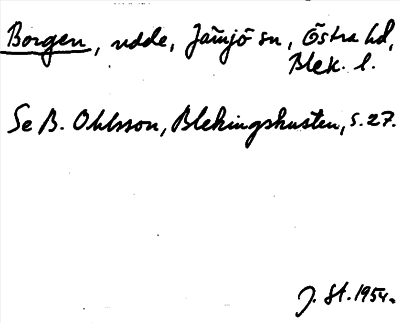 Borgen, udde, Jämjö sn, Östra hd,
Blek. l.
Se B. Ohlsson, Blekingskusten, s. 27.
J. St. 1954.